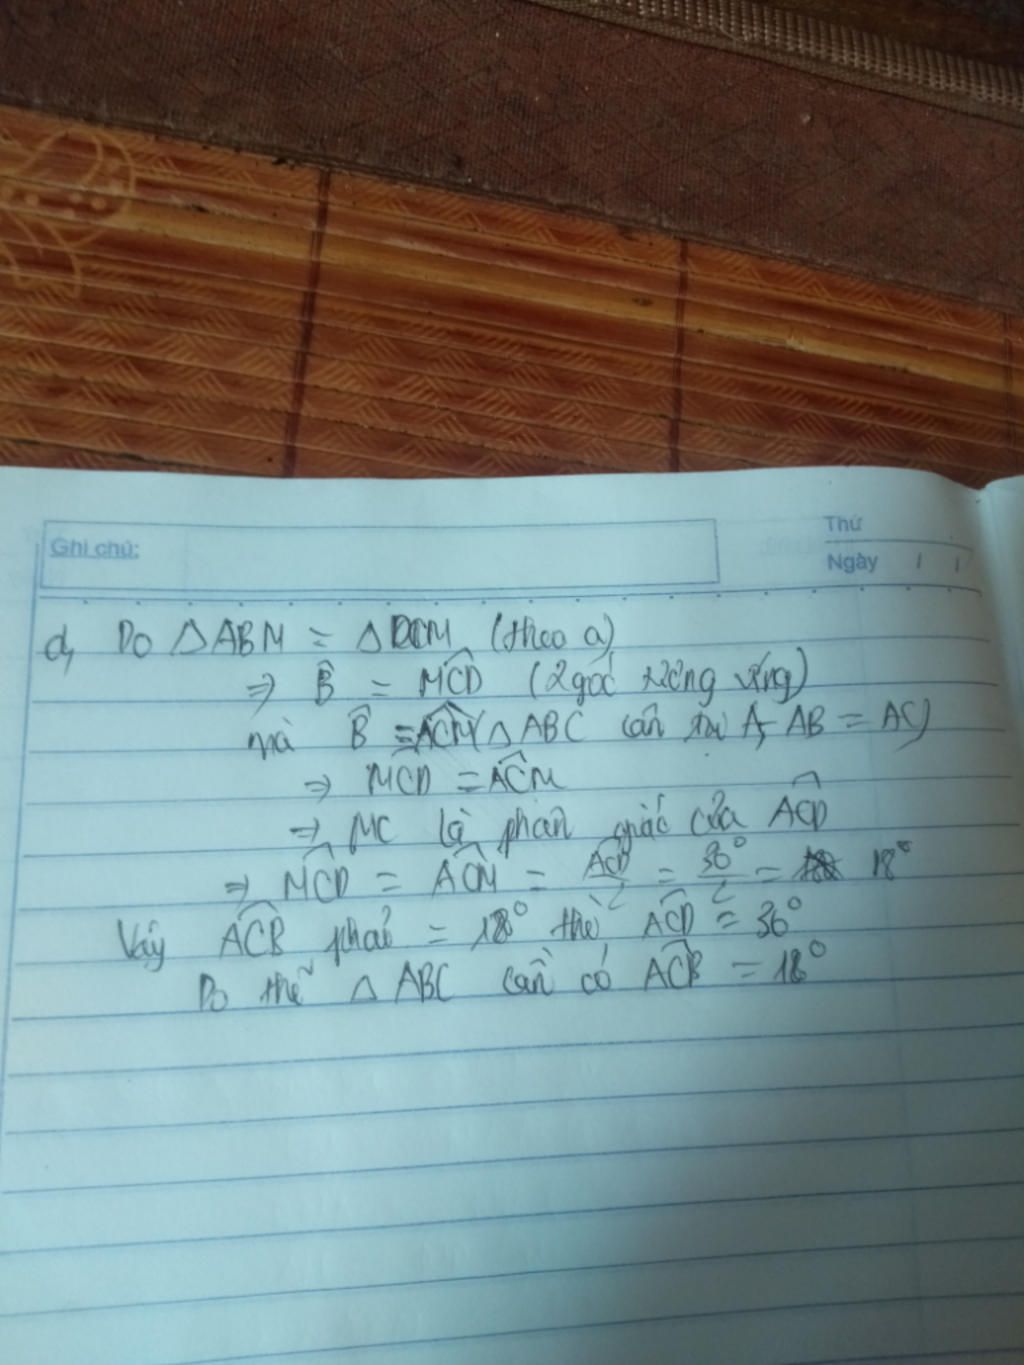 Ghi chú:
Thứ
Ngày / /
d, Do △ABM = △DCM (theo a)
⇒ B̂ = M̂CD (2 góc tương ứng)
mà B̂ = ÂCM (△ABC cân tại A, AB = AC)
⇒ M̂CD = ÂCM
⇒ MC là phân giác của ÂCD
⇒ M̂CD = ÂCM = ÂCD/2 = 36°/2 = 18°
Vậy ÂCB phải = 18° thì ÂCD = 36°
Do thế △ABC cần có ÂCB = 18°